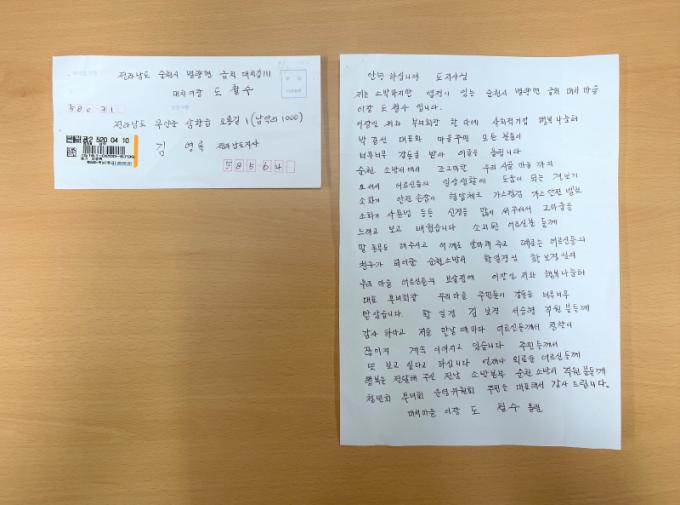 전라남도 순천시 별량면 금치 대치길111
대치이장 도 철수
전라남도 무안군 삼향읍 오룡길 1 (남악리 1000)
김 영록 전라남도지사
58564
안녕 하십니까 도지사님
저는 소박하지만 열정이 있는 순천시 별량면 금치 대치 마을
이장 도 철수 입니다.
이장인 저와 부녀회장 한 사회적기업 행복나눔터
박 대표와 마을주민 모든 분들이
너무너무 감동을 받아 이글을 올립니다
순천 소방서에서 조그마한 우리 시골 마을 까지
오셔서 어르신들의 일상생활에 도움이 되는
소화기 안전 점검 혈압체크 가스점검 가스안전 밸브
소화기 사용법 등등 신경을 많이 써주셔서 고마움을
느끼고 보고 배웠습니다 소외된 어르신분들께
말 동무도 해주시고 어깨도 주고 때로는 어르신들의
친구가 되어준 순천소방서
우리 마을 어르신들을 보살핌에 이장인 저와 행복나눔터
대표 부녀회장 우리마을 주민들이 감동을 너무너무
받았습니다. 김 보경 서승형 직원 분들께
감사 하다고 저를 만날때마다 어르신들께서 칭찬이
끊이지 계속 이어지고 있습니다 주민들께서
또 보고 싶다고 하십니다 언제나 외로운 어르신들께
행복을 전달해 주신 전남 소방본부 순천 소방서 직원 분들께
청년회 부녀회 운영위원회 주민을 대표해서 감사 드립니다.
대치마을 이장 도 철수 올림